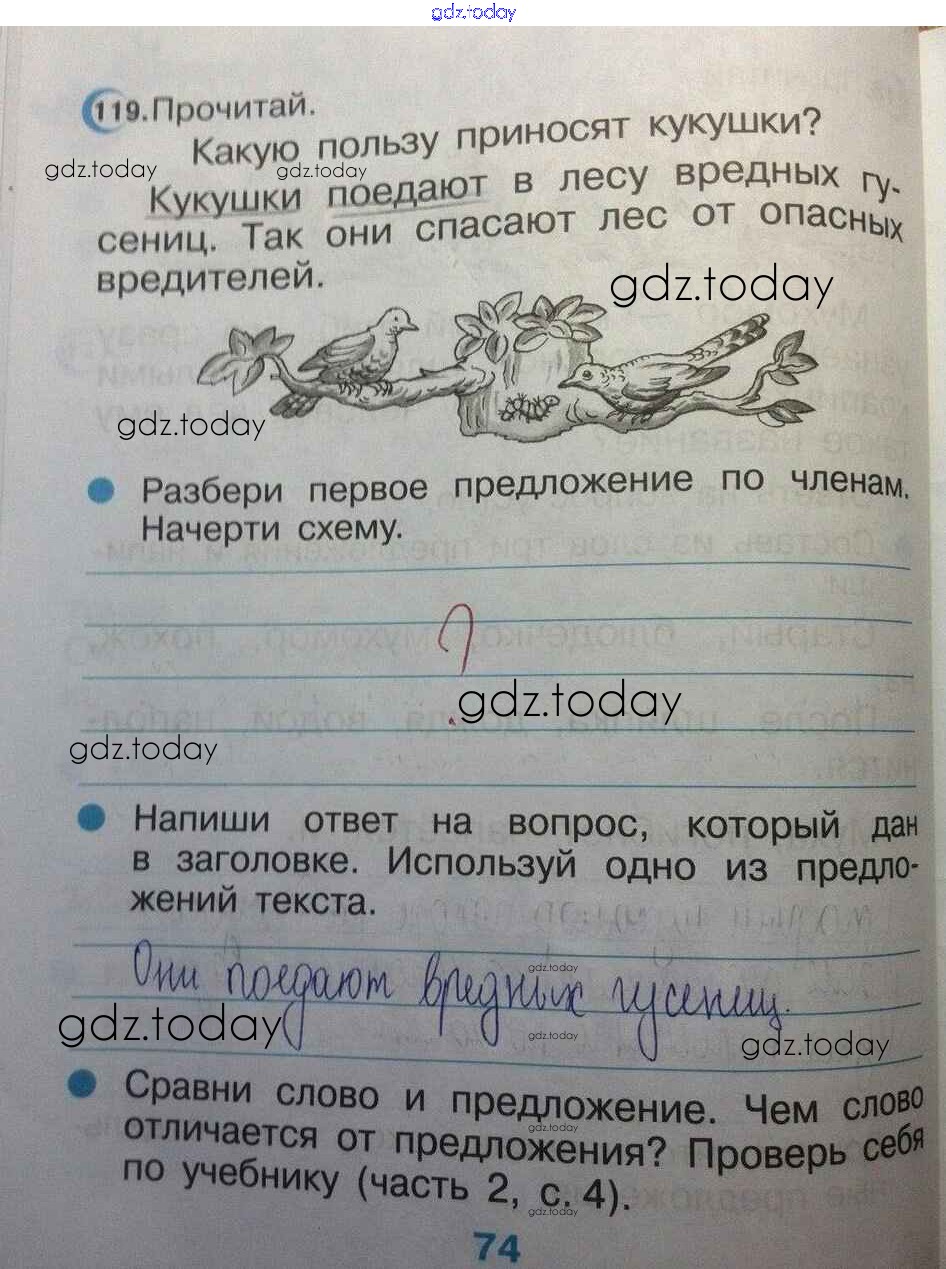 gdz.today
119. Прочитай.
Какую пользу приносят кукушки?
gdz.today gdz.today
Кукушки поедают в лесу вредных гу-
сениц. Так они спасают лес от опасных
вредителей.
gdz.today
gdz.today
Разбери первое предложение по членам.
Начерти схему.
?
gdz.today
gdz.today
Напиши ответ на вопрос, который дан
в заголовке. Используй одно из предло-
жений текста.
gdz.today
Они поедают вредных гусениц.
gdz.today
gdz.today
gdz.today
Сравни слово и предложение. Чем слово
gdz.today
отличается от предложения? Проверь себя
по учебнику (часть 2, с. 4).
gdz.today
74